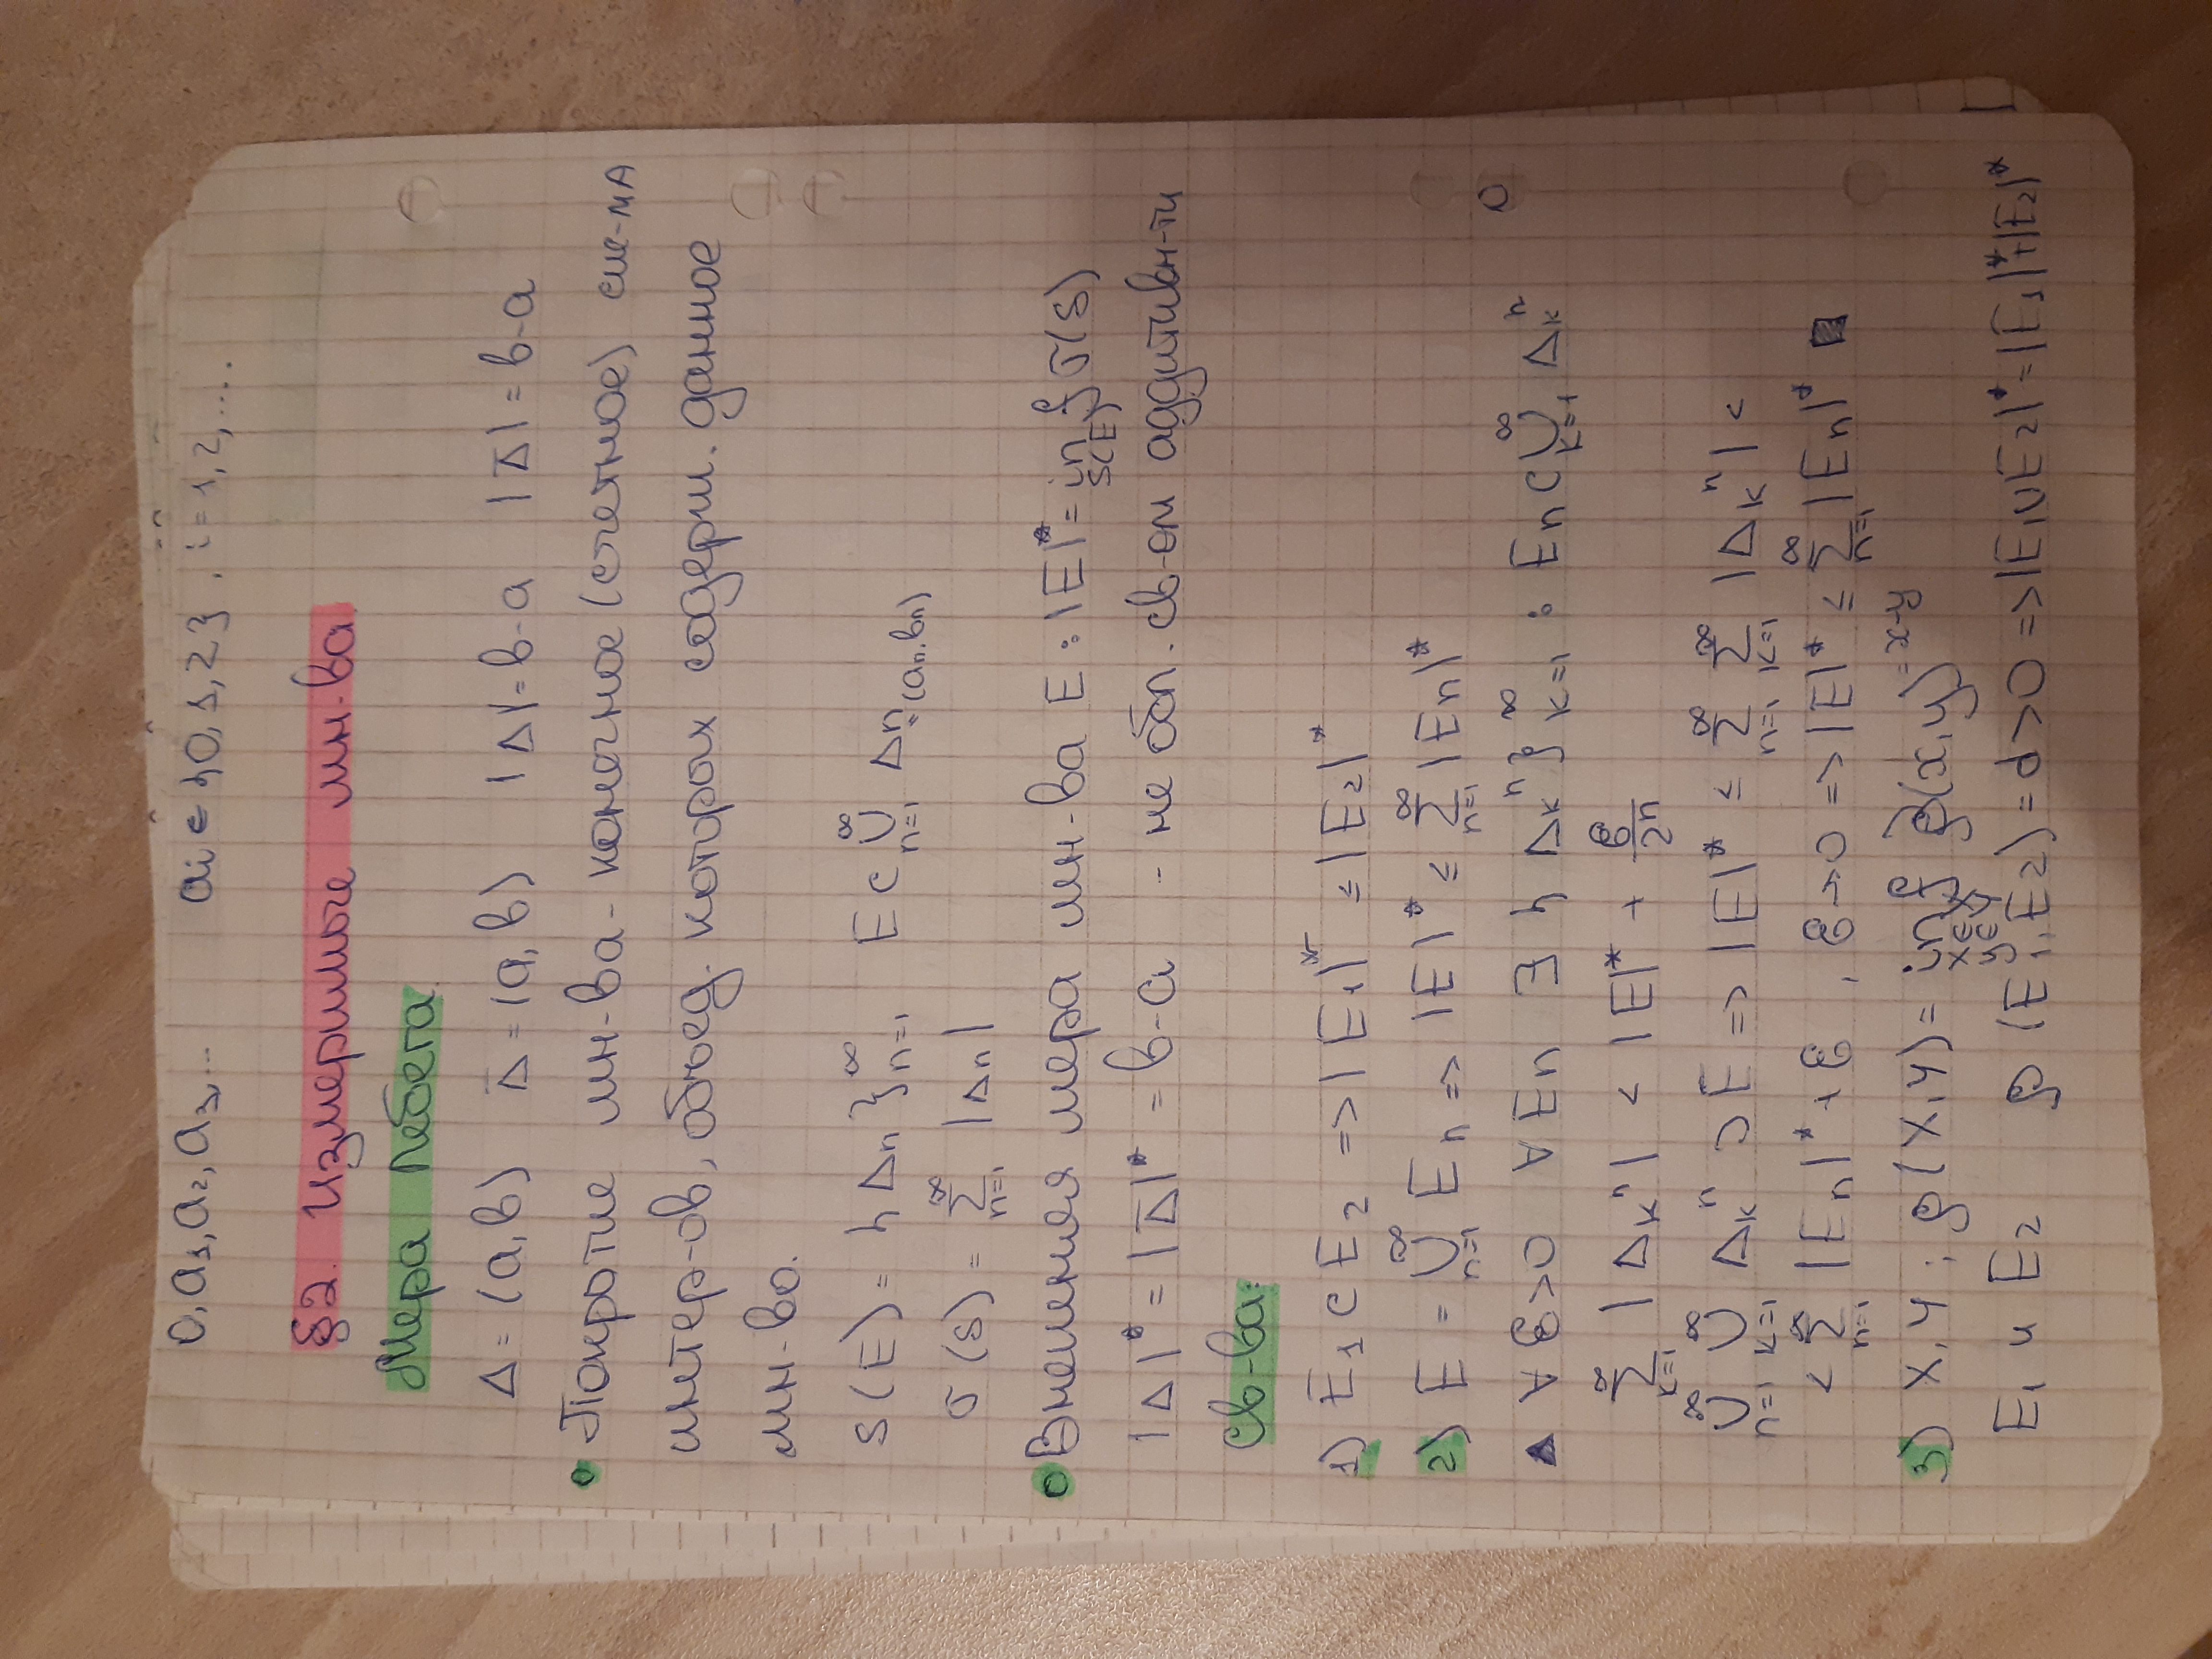 0,a₁,a₂,a₃,... aᵢ ∈ {0,1,2} . i=1,2,....
§2. Измеримые мн-ва.
Мера Лебега.
Δ = (a,b) Δ̅ = [a,b) |Δ|=b-a |Δ̅| = b-a
• Покрытие мн-ва - конечное (счетное) сис-ма
интер-ов, объед. которых содерж. данное
мн-во.
S(E) = {Δn}ₙ₌₁^∞ E ⊂ ⋃ₙ₌₁^∞ Δn=(an.bn)
σ(S) = ∑ₙ₌₁^∞ |Δn|
• Внешняя мера мн-ва E : |E|* = inf_{S(E)} σ(S)
|Δ|* = |Δ̅|* = b-a - не обл. св-ом аддитивн-ти
Св-ва:
1) E₁ ⊂ E₂ => |E₁|* ≤ |E₂|*
2) E = ⋃ₙ₌₁^∞ En => |E|* ≤ ∑ₙ₌₁^∞ |En|*
▲ ∀ ε>0 ∀ En ∃ {Δkⁿ}ₖ₌₁^∞ : En ⊂ ⋃ₖ₌₁^∞ Δkⁿ
∑ₖ₌₁^∞ |Δkⁿ| < |E|* + ε/2ⁿ
⋃ₙ₌₁^∞ ⋃ₖ₌₁^∞ Δkⁿ ⊃ E => |E|* ≤ ∑ₙ₌₁^∞ ∑ₖ₌₁^∞ |Δkⁿ| <
< ∑ₙ₌₁^∞ |En|* + ε , ε→0 => |E|* ≤ ∑ₙ₌₁^∞ |En|* ■
3) X,Y ; ρ(X,Y) = inf_{x∈X y∈Y} ρ(x,y) =x-y
E₁ и E₂ ρ(E₁,E₂) = d>0 => |E₁∪E₂|* = |E₁|*+|E₂|*